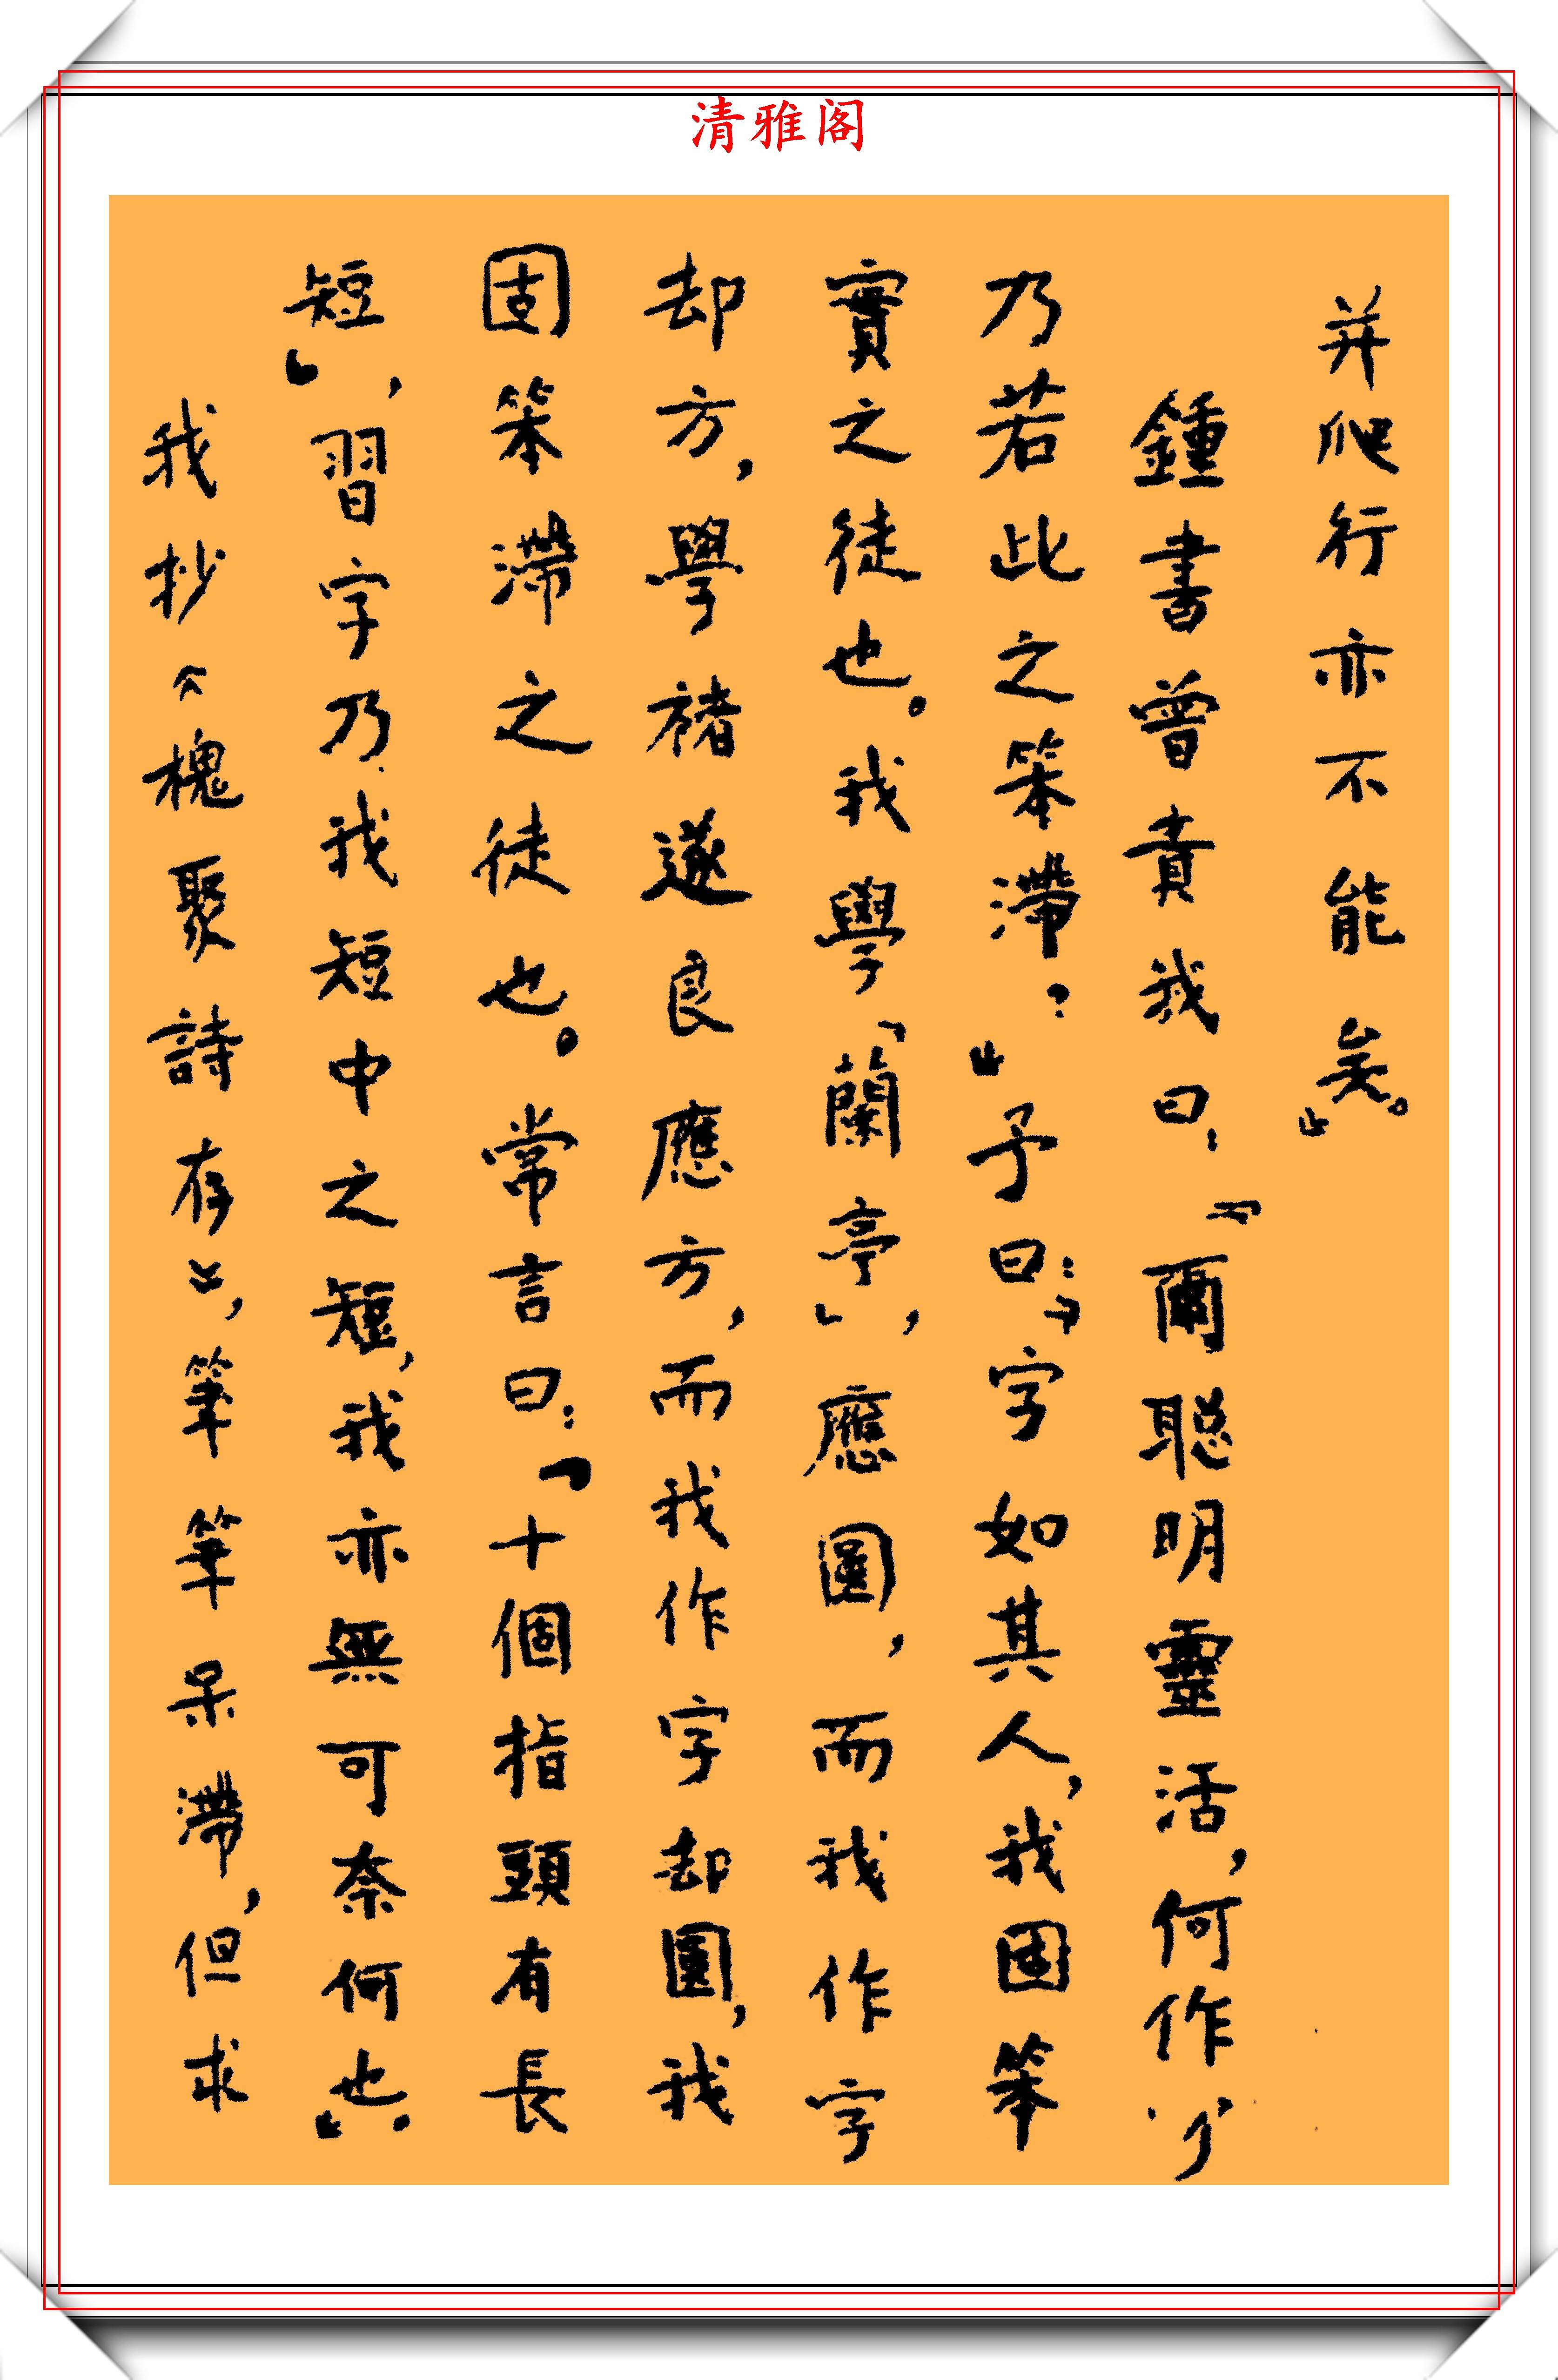 清雅阁
并爬行亦不能矣。」
鍾書曾責我曰:「爾聰明靈活,何作字
乃若此之笨滯?」予曰:「字如其人,我固笨
實之徒也。我學「蘭亭」,應圓,而我作字
却方,學褚遂良應方,而我作字却圓,我
固笨滯之徒也。常言曰:「十個指頭有長
短」,習字乃我短中之短,我亦無可奈何也」。
我抄《槐聚詩存》,筆筆呆滯,但求